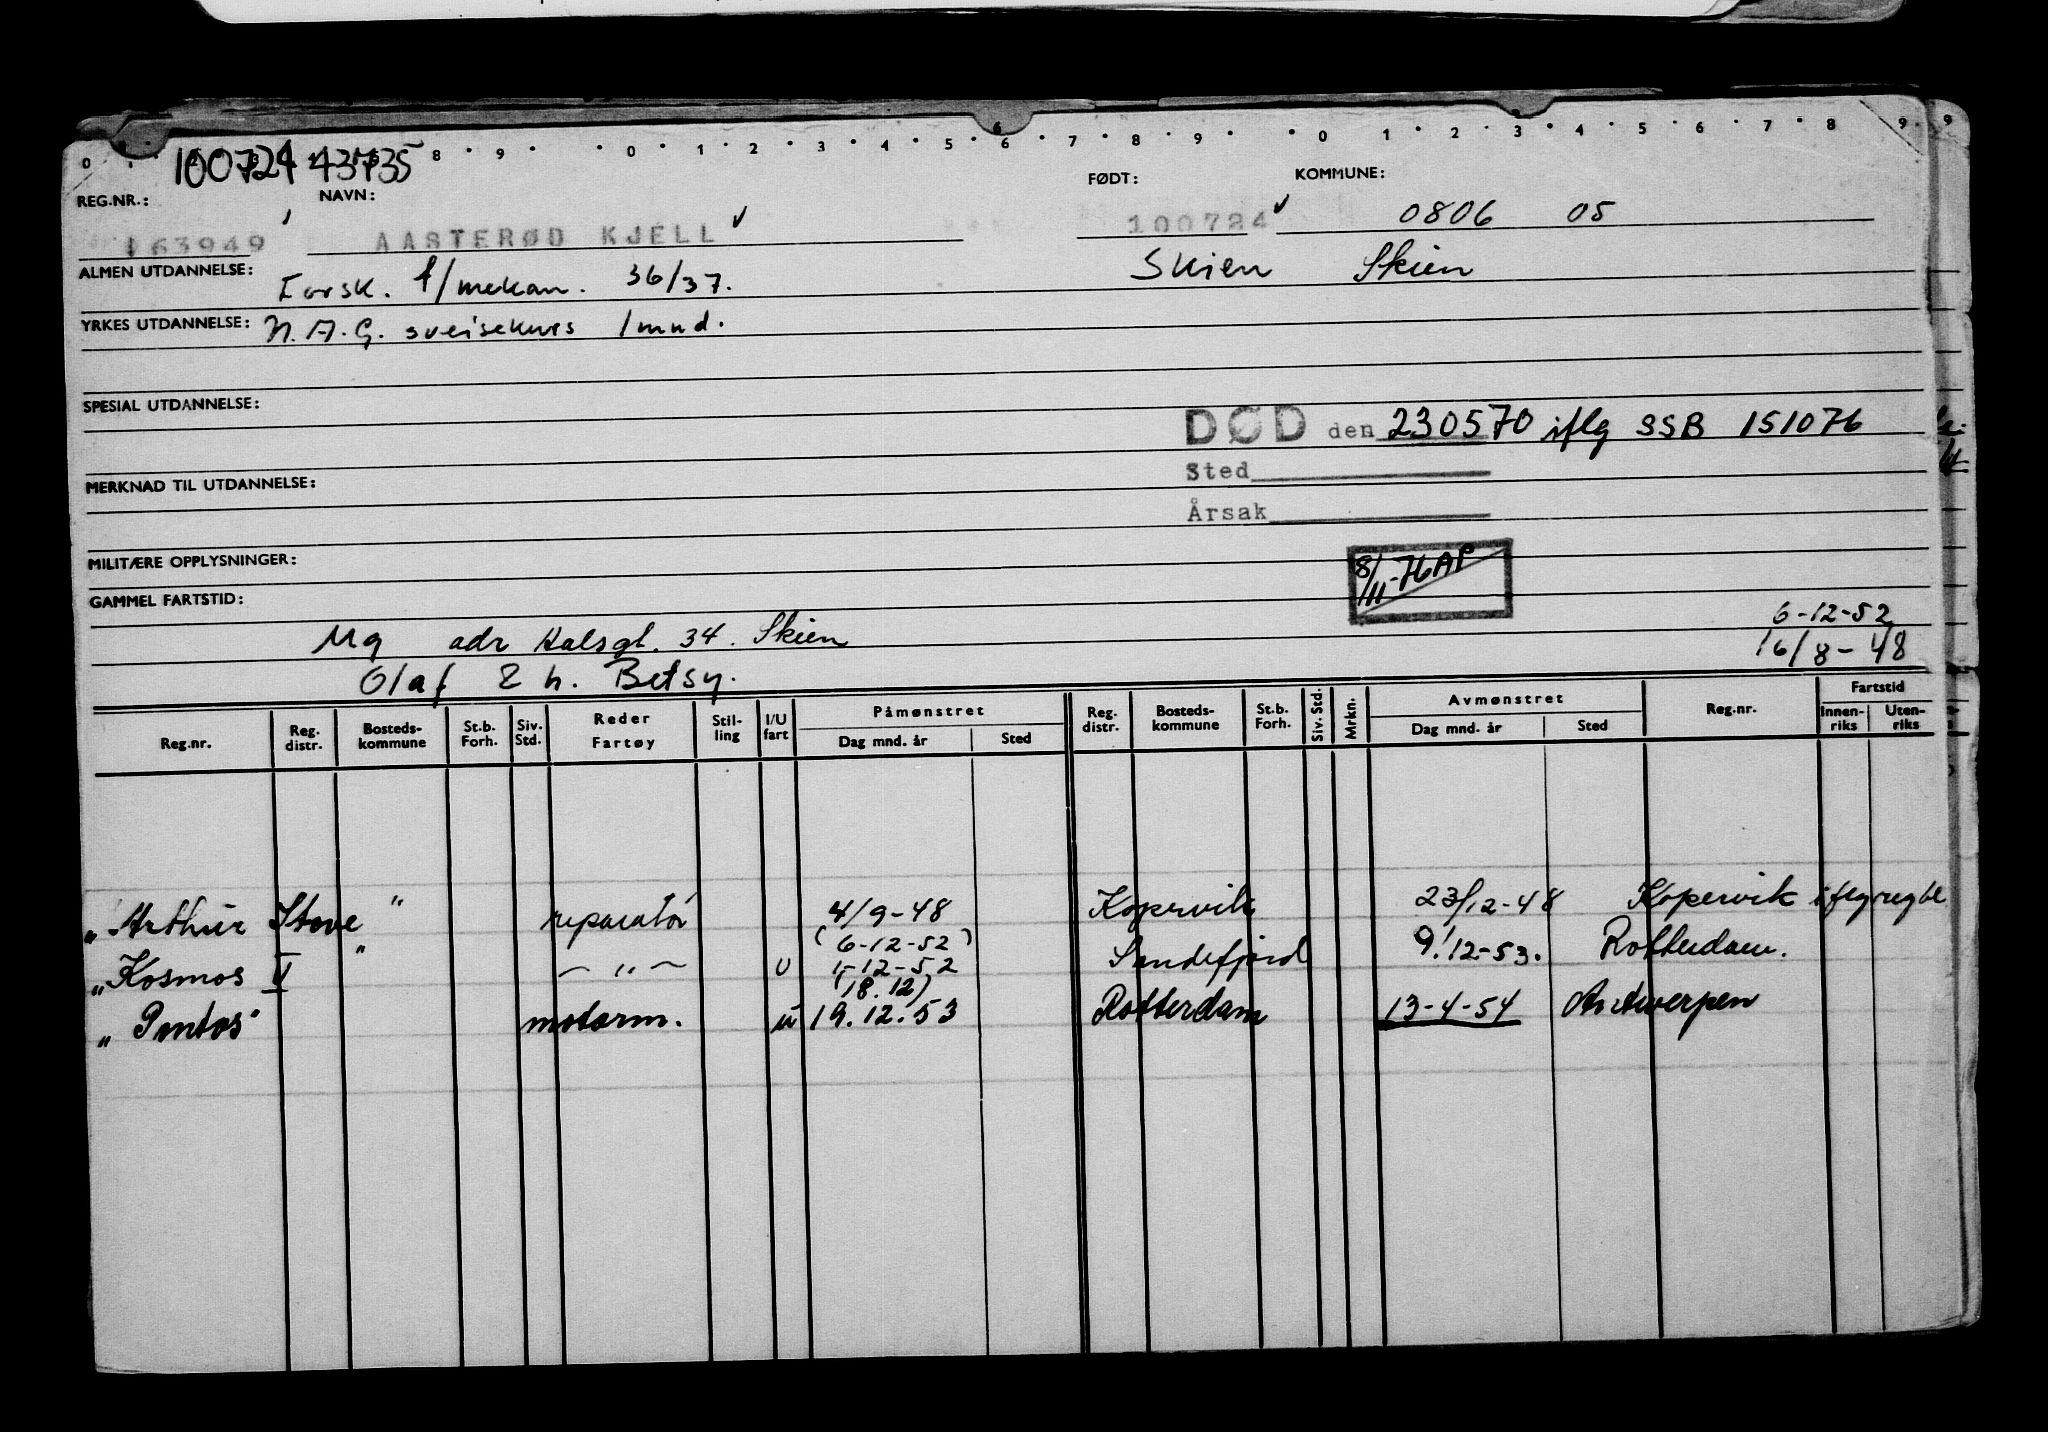 0 8 9 0 1 2 3 4 5 6 7 8 9 0 1 2 3 4 5 6 7 8 9 9
100724 43735
REG.NR.: NAVN: FØDT: KOMMUNE:
163949 AASTERØD KJELL 100724 0806 05
ALMEN UTDANNELSE: Forsk. f/mekan. 36/37. Skien Skien
YRKES UTDANNELSE: N.A.G. sveisekurs 1 mnd.
SPESIAL UTDANNELSE:
DØD den 230570 iflg SSB 151076
MERKNAD TIL UTDANNELSE: Sted
Årsak
MILITÆRE OPPLYSNINGER: 8/11-76 AP
GAMMEL FARTSTID:
6-12-52
Ug adr Halsgt. 34. Skien 16/8-48
Olaf & h. Betsy.
Reg.nr. Reg. distr. Bosteds-kommune St.b. Forh. Siv. Std. Reder Fartøy Stil-ling I/U fart Påmønstret Dag mnd. år Sted Reg. distr. Bosteds-kommune St.b. Forh. Siv. Std. Mrkn. Avmønstret Dag mnd. år Sted Reg.nr. Fartstid Innen-riks Uten-riks
" Arthur Stove " reparatør 4/9-48 Kopervik 23/12-48 Kopervik iflg
(6-12-52)
" Kosmos V " — " — U 1-12-52 Sandefjord 9/12-53. Rotterdam.
(18.12)
" Pontos" motorm. u 19.12.53 Rotterdam 13-4-54 Antwerpen